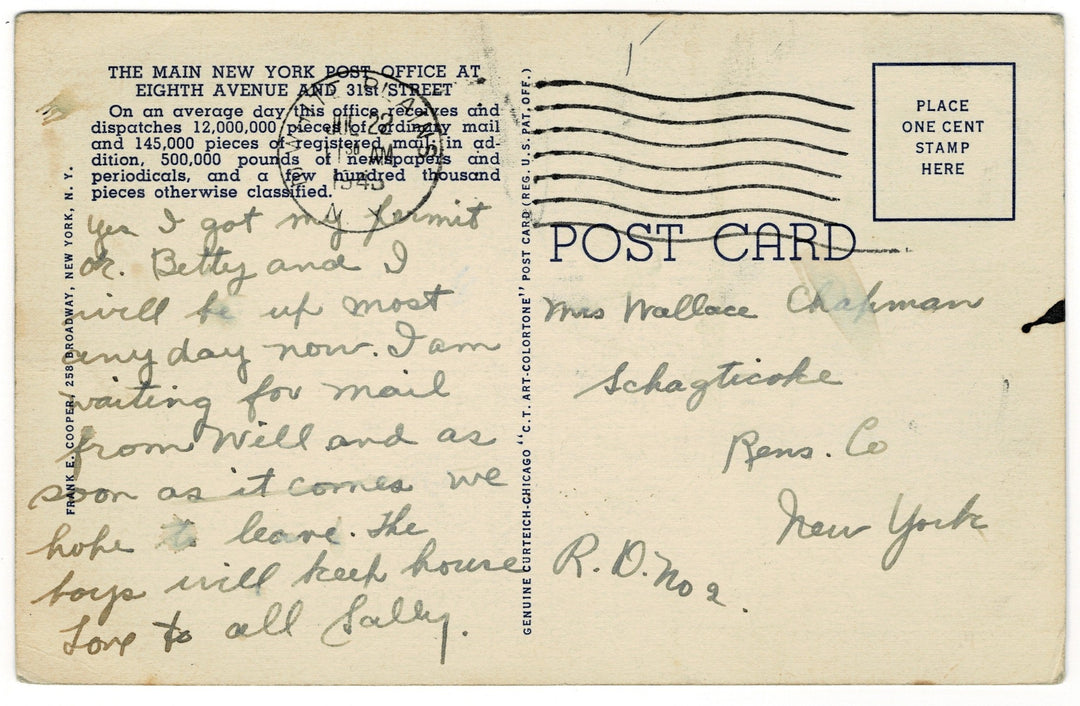 THE MAIN NEW YORK POST OFFICE AT
EIGHTH AVENUE AND 31st STREET
On an average day this office receives and
dispatches 12,000,000 pieces of ordinary mail
and 145,000 pieces of registered mail in ad-
dition, 500,000 pounds of newspapers and
periodicals, and a few hundred thousand
pieces otherwise classified.
WHITE PLAINS
JUL 22
11 30 AM
1943
N. Y.
yes I got my permit
dr. Betty and I
will be up most
any day now. I am
waiting for mail
from Will and as
soon as it comes we
hope to leave. The
boys will keep house
Love to all Sally.
FRANK E. COOPER, 258 BROADWAY, NEW YORK, N. Y.
GENUINE CURTEICH-CHICAGO "C. T. ART-COLORTONE" POST CARD (REG. U. S. PAT. OFF.)
PLACE
ONE CENT
STAMP
HERE
POST CARD
Mrs Wallace Chapman
Schagticoke
Rens. Co
New York
R. D. No 2.